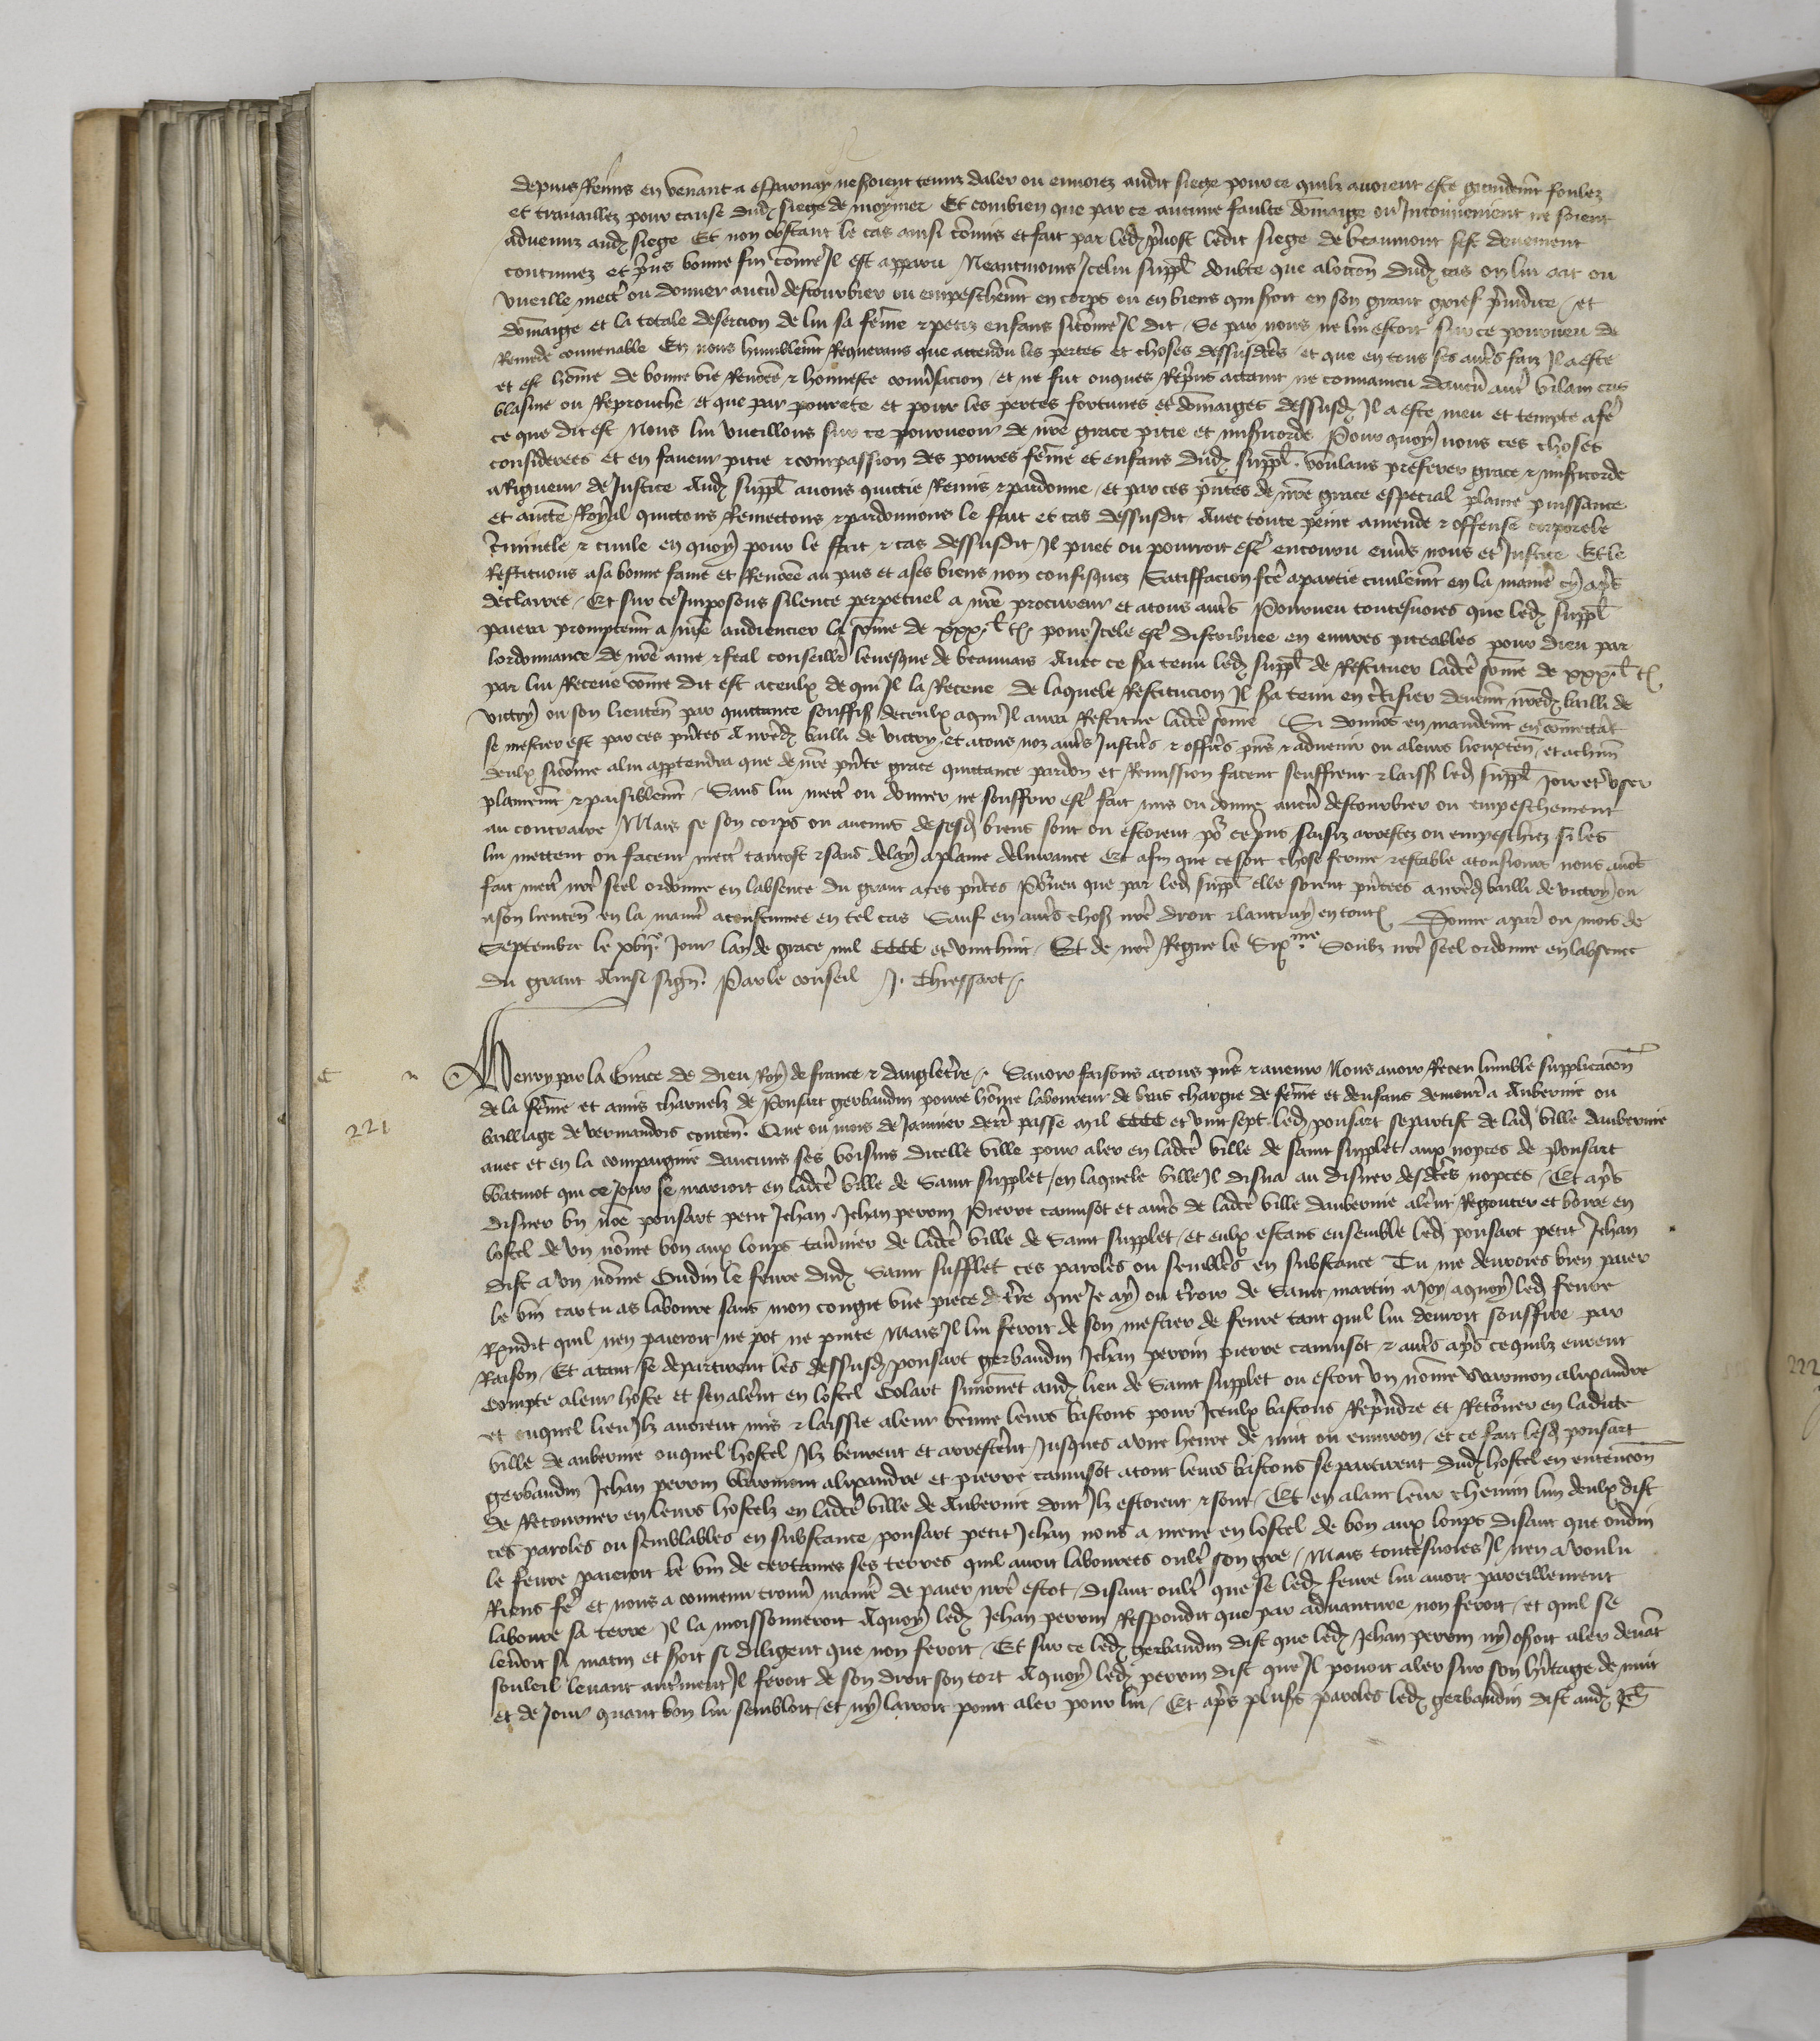 depuis Reims en venant a esparnay ne soient tenuz daler ou envoiez audit siege pour ce quilz avoient este grandemt foulez
et travaillez pour cause dud siege de moymer Et combien que par ce aucune faulte domaige ou Inconvenient ne soient
advenuz aud siege Et non obstant le cas ainsi comis et fait par led pvost ledit siege de beaumont fist deuement
continuez et pris bonne fin come Il est apparu Neantmoins Icelui suppl doubte que aloccon dud cas on lui ait ou
vueille mectr ou donner aucun destourbier ou empeschemt en corps ou en biens qui soit en son grant grief preiudice et
domaige et la totale desercion de lui sa feme & petiz enfans sicome Il dit Se par nous ne lui estoit sur ce pourveu de
Remede convenable En nous humblemt Requerans que attendu les pertes et choses dessusdctes et que en tous ses autrs faiz Il a este
et est home de bonne vie Renomee & honneste conversacion et ne fut onques Repris actaint ne convaincu daucun autr vilain cas
blasme ou Reprouche et que par povrete et pour les pertes fortunes et domaiges dessusd Il a este meu et tempte a fe
ce que dit est Nous lui vueillons sur ce pourveoir de nre grace pitie et misericorde Pour quoy nous ces choses
considerees et en faveur pitie & compassion des povres feme et enfans dud suppl. voulans preferer grace & misericorde
a Rigueur de Justice Aud suppl avons quictie Remis & pardonne et par ces pntes de nre grace especial plaine puissance
et aucte Royal quictons Remectons & pardonnons le fait et cas dessusdit Avec toute peine amende & offense corporele
criminele & civile en quoy pour le fait & cas dessusdit Il puet ou pourroit estr encouru envers nous et Justice Et le
Restituons a sa bonne fame et Renomee au pais et a ses biens non confisquez Satiffacion fcte a partie civilemt en la maniere cy aprs
declairee Et sur ce Imposons silence perpetuel a nre procureur et a tous autrs Pourveu toutesvoies que led suppl
paiera promptemt a nre audiencier la some de xxx l t pour Icele estr distribuee en euvres piteables pour dieu par
lordonnance de nre ame & feal conseiller levesque de beauvais Avec ce sera tenu led suppl de Restituer ladcte some de xxx l t
par lui Receue come dit est a ceulx de qui Il la Receue de laquele Restitucion Il sera tenu en certifier deuemt nred bailli de
victry ou son lieuten par quictance souffis de ceulx a qui Il aura Restitue ladcte some Si donnons en mandemt en comettant
se mestier est par ces pntes A nred bailli de victry et a tous noz autrs Justicrs & officrs pns & advenir ou a leurs lieuxten et a chun
deulx sicome a lui appartendra que de nre pnte grace quictance pardon et Remission facent seuffrent & laiss led suppl Joir et user
plainemt & paisiblemt Sans lui mectr ou donner ne souffrir estr fait mis ou donne aucun destourbier ou empeschement
au contraire Mais se son corps ou aucuns de sesd biens sont ou estoient por ce prins saisiz arrestez ou empeschiez si les
lui mettent ou facent mectr tantost & sans delay a plaine delivrance Et afin que ce soit chose ferme & estable a tousiours nous avons
fait mectr nre seel ordonne en labsence du grant a ces pntes Pourveu que par led suppl elle soient pntees a nred bailli de victry ou
a son lieuten en la manr acoustumee en tel cas Sauf en autrs chos nre droit & lautruy en tout Donne a paris ou mois de
Septembre le xviie Jour lan de grace mil CCCC et vint huit Et de nre Regne le Sixme Soubz nre seel ordonne en labsence
du grant Ainsi sign. Par le conseil J. Thiessart
Henry par la Grace de Dieu Roy de france & dangleterre Savoir faisons a tous pns & avenir Nous avoir Receu lumble supplicacon
de la feme et amis charnelz de Ponsart gerbaudin povre home laboureur de bras chargie de feme et denfans demour a Auberive ou
bailliage de vermandois conten. Que ou mois de Janvier derr passe mil CCCC et vint sept led ponsart se partist de lad ville dauberive
221
avec et en la compaignie daucuns ses voisins dicelle ville pour aler en ladcte ville de saint supplet aux nopces de ponsart
Watinot qui ce Jour se marioit en ladcte ville de Saint supplet en laquele ville Il disna au disner desdctes nopces Et aprs
disner un nome ponsart petit Jehan Jehan perrin Pierre camusot et autrs de ladcte ville dauberive alerent Regouter et boire en
lostel de un nome bon aux loups tavernier de ladcte ville de Saint supplet et eulx estans ensemble led ponsart petit Jehan
dist a un nome Oudin le fevre dud Saint supplet ces paroles ou sembles en substance Tu me devroies bien paier
le vin car tu as laboure sans mon congie une piece de tre que Je ay ou terroir de Saint martin a Joy a quoy led fevre
Rndit quil nen paieroit ne pot ne pinte Mais Il lui feroit de son mestier de fevre tant quil lui devroit souffire par
Raison Et atant se departirent les dessusd ponsart gerbaudin Jehan perrin pierre camusot & autrs aprs ce quilz eurent
compte a leur hoste et sen alerent en lostel Colart simonet aud lieu de Saint supplet ou estoit un nome Warmon alixandre
et ouquel lieu Ilz avoient mis & laissie a leur venue leurs bastons pour Iceulx bastons Reprendre et Retourner en ladicte
ville de auberive ouquel hostel Ilz beurent et arresterent Jusques a une heure de nuit ou environ et ce fait lesd ponsart
gerbaudin Jehan perrin Warmon alixandre et pierre camusot a tout leurs bastons se partirent dud hostel en entencon
de Retourner en leurs hostelz en ladcte ville de Auberive dont Ilz estoient & sont Et en alant leur chemin lun deulx dist
ces paroles ou semblables en substance ponsart petit Jehan nous a mene en lostel de bon aux loups disant que oudin
le fevre paieroit le vin de certaines ses terres quil avoit labourees oultr son gre Mais toutesvoies Il nen a voulu
Riens fe et nous a convenu trouver manr de paier nre escot disant oultr que se led fevre lui avoit pareillement
laboure sa terre Il la moissonneroit A quoy led Jehan perrin Respondit que par adventure non feroit et quil se
leveroit si matin et soit si diligent que non feroit Et sur ce led gerbaudin dist que led Jehan perrin ny osoit aler devant
souleil levant autrement Il feroit de son droit son tort A quoy led perrin dist que Il pouoit aler sur son heritage de nuit
et de Jour quant bon lui sembloit et ny lairoit point aler pour lui Et aprs plusrs paroles led gerbaudin dist aud Jeh
222